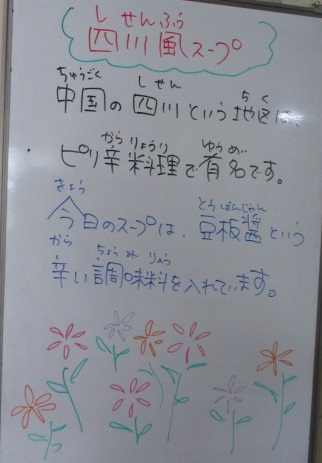 しせんふう
四川風スープ
ちゅうごく しせん ちく
中国の四川という地区は、
から りょうり ゆうめい
ピリ辛料理で有名です。
きょう とうばんじゃん
今日のスープは、豆板醤という
から ちょうみりょう
辛い調味料を入れています。